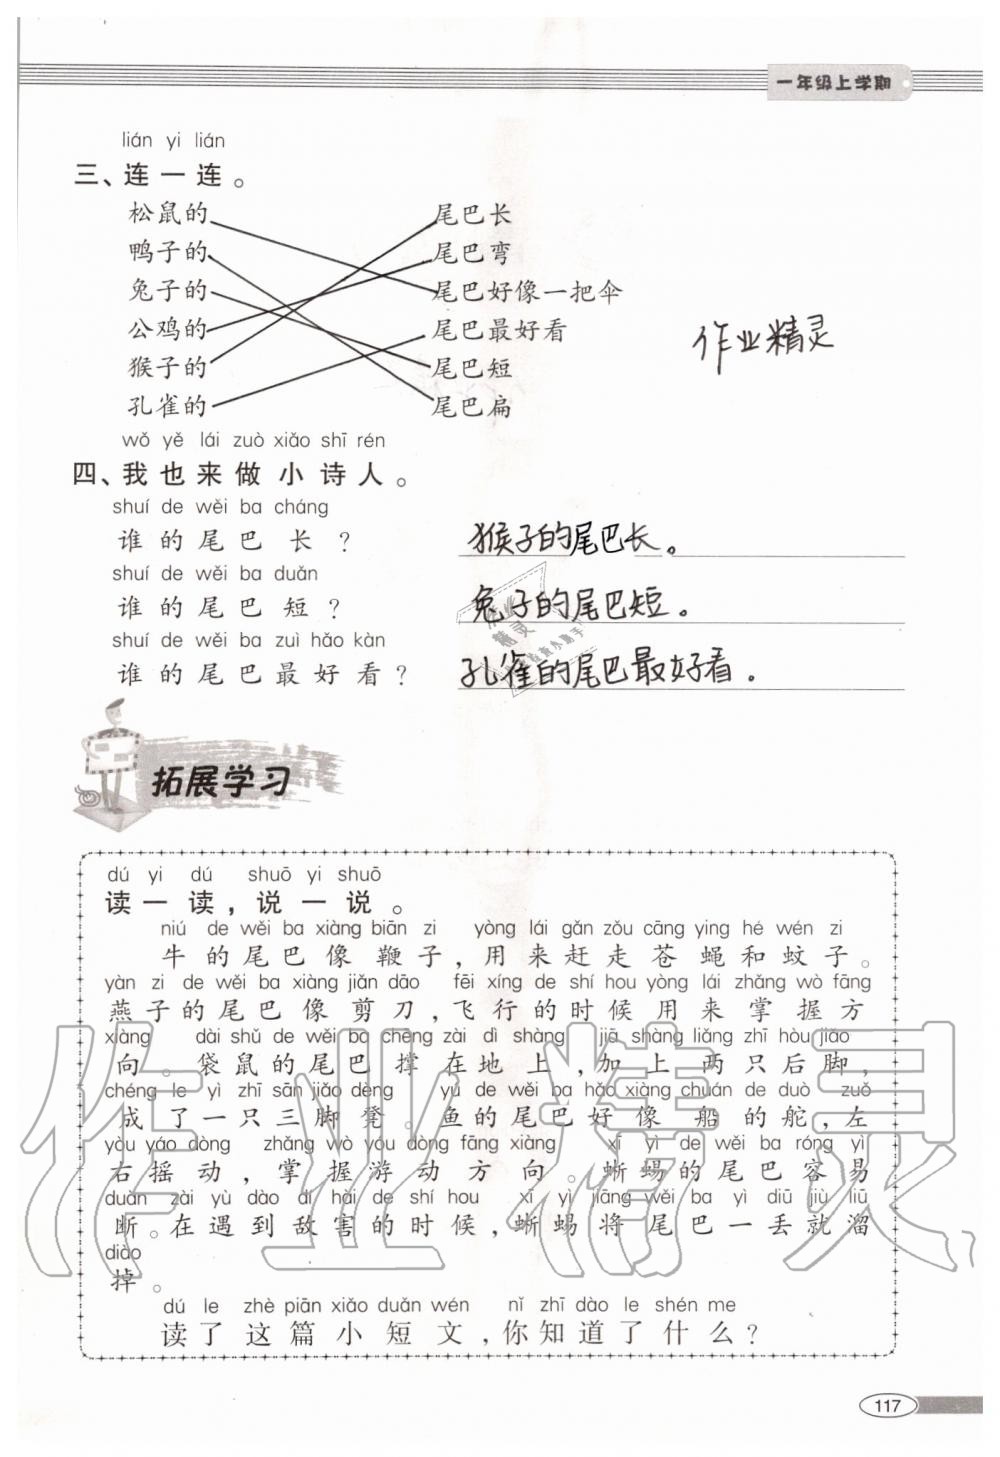 一年级上学期
lián yi lián
三、连一连。
松鼠的 尾巴长
鸭子的 尾巴弯
兔子的 尾巴好像一把伞
公鸡的 尾巴最好看
猴子的 尾巴短
孔雀的 尾巴扁
作业精灵
wǒ yě lái zuò xiǎo shī rén
四、我也来做小诗人。
shuí de wěi ba cháng
谁的尾巴长? 猴子的尾巴长。
shuí de wěi ba duǎn
谁的尾巴短? 兔子的尾巴短。
shuí de wěi ba zuì hǎo kàn
谁的尾巴最好看? 孔雀的尾巴最好看。
拓展学习
dú yi dú shuō yi shuō
读一读,说一说。
niú de wěi ba xiàng biān zi yòng lái gǎn zǒu cāng ying hé wén zi
牛的尾巴像鞭子,用来赶走苍蝇和蚊子。
yàn zi de wěi ba xiàng jiǎn dāo fēi xíng de shí hou yòng lái zhǎng wò fāng
燕子的尾巴像剪刀,飞行的时候用来掌握方
xiàng dài shǔ de wěi ba chēng zài dì shàng jiā shàng liǎng zhī hòu jiǎo
向。袋鼠的尾巴撑在地上,加上两只后脚,
chéng le yì zhī sān jiǎo dèng yú de wěi ba hǎo xiàng chuán de duò zuǒ
成了一只三脚凳。鱼的尾巴好像船的舵,左
yòu yáo dòng zhǎng wò yóu dòng fāng xiàng xī yì de wěi ba róng yì
右摇动,掌握游动方向。蜥蜴的尾巴容易
duàn zài yù dào dí hài de shí hou xī yì jiāng wěi ba yì diū jiù liū
断。在遇到敌害的时候,蜥蜴将尾巴一丢就溜
diào
掉。
dú le zhè piān xiǎo duǎn wén nǐ zhī dào le shén me
读了这篇小短文,你知道了什么?
117